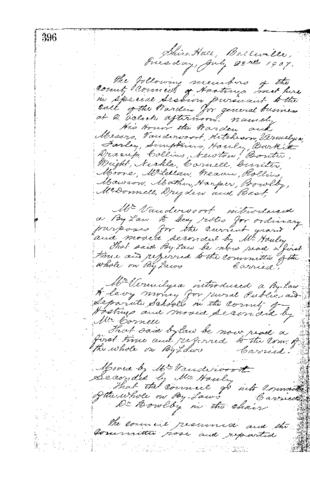 396
Shire Hall, Belleville,
Tuesday, July 23rd 1907.
The following members of the
County Council of Hastings met here
in Special Session pursuant to the
call of the Warden for general business
at 2 o'clock afternoon. namely
His Honor the Warden and
Messrs Vandervoort, Hitchison, Vermilyea,
Farley, Simpkins, Hanly, Burkitt
Collins, Newton, Bonter,
Wright, Cornell, Gunter,
Moore, McLellan, Rollins,
Mawson, Mather, Harper, Bowlby,
McDonnell Dryden and Best
Mr. Vandervoort introduced
a By Law to levy rates for ordinary
purposes for the current year
and moved seconded by Mr Hanly
That said By Law be now read a first
time and referred to the committee of the
whole on By Laws Carried.
Mr Vermilyea introduced a By Law
to levy money for rural Public and
Separate Schools in the County of
Hastings and moved seconded by
Mr. Cornell
That said by law be now read a
first time and referred to the Com. of
the whole on By Laws Carried.
Moved by Mr Vandervoort
Seconded by Mr Hanly
That the council go into Committee
of the whole on By Laws Carried
Dr Bowlby in the chair
The council resumed and the
committee rose and reported